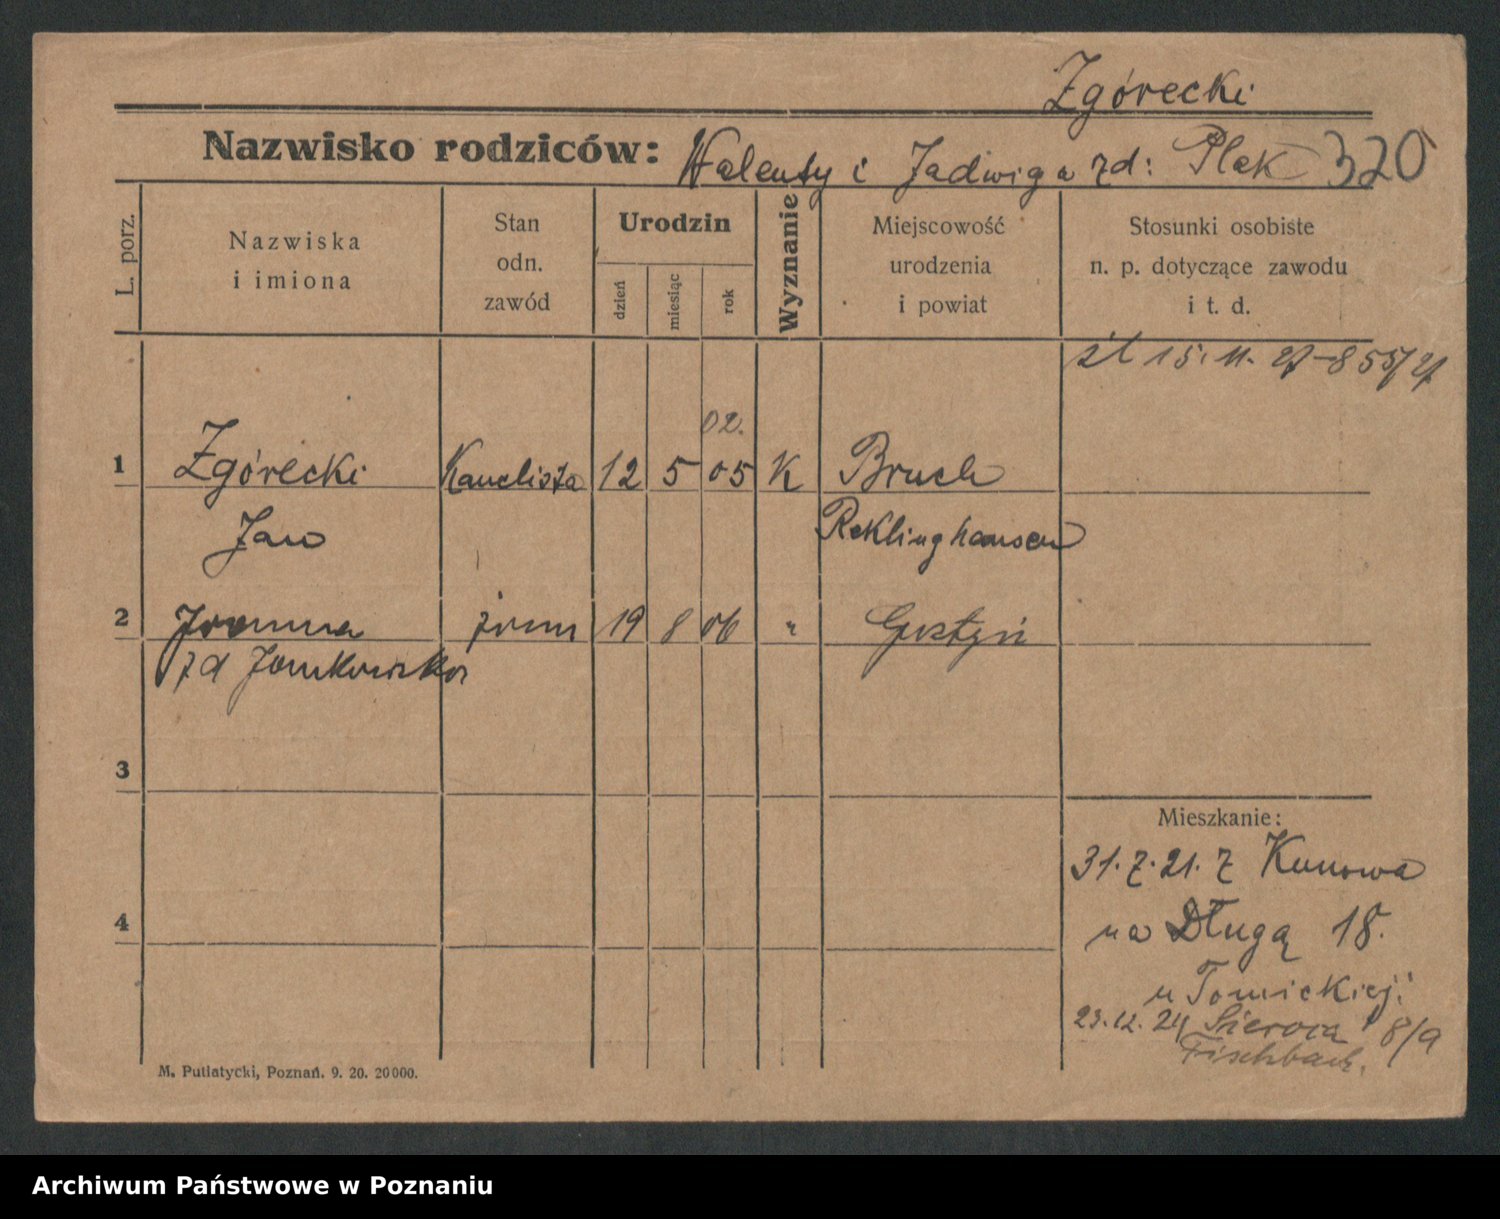 Zgórecki
Nazwisko rodziców: Walenty i Jadwiga zd: Plak 320
L. porz.
Nazwiska
i imiona
Stan
odn.
zawód
Urodzin
dzień
miesiąc
rok
Wyznanie
Miejscowość
urodzenia
i powiat
Stosunki osobiste
n. p. dotyczące zawodu
i t. d.
15. 11. 27 - 855/27
02.
1 Zgórecki Kanclista 12 5 05 K Bruch
Jan Reklinghausen
2 Joanna żona 19 8 06 " Gostyń
zd Jankowska
3
Mieszkanie:
31. 7. 21. z Kunowa
4
na Długą 18.
u Tomickiej.
23. 12. 24 Sieroca 8/9
Fischbach.
M. Putiatycki, Poznań. 9. 20. 20000.
Archiwum Państwowe w Poznaniu